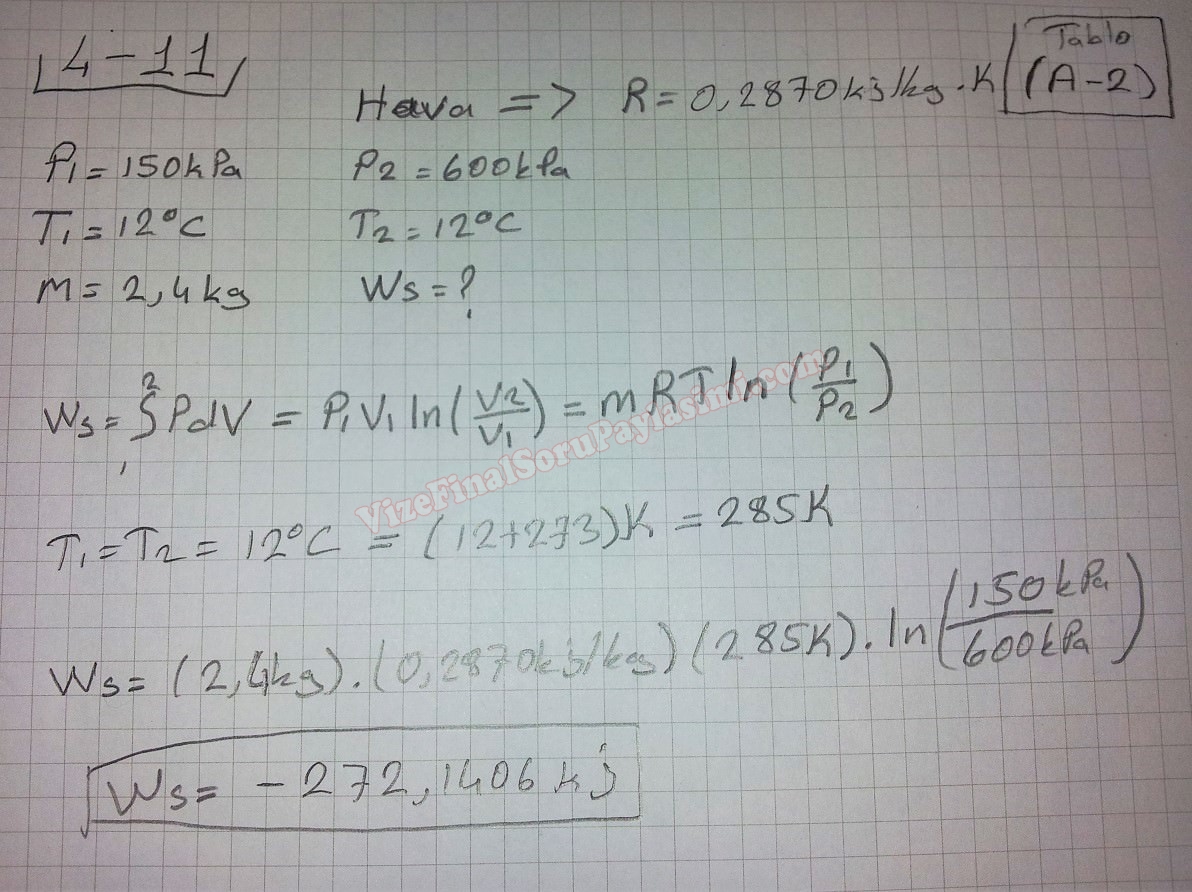 4-11
Tablo
Hava => R = 0,2870 kj/kg.K (A-2)
P1 = 150 kPa P2 = 600 kPa
T1 = 12°C T2 = 12°C
m = 2,4 kg Ws = ?
Ws = ∫₁² PdV = P1V1 ln(V2/V1) = mRT ln(P1/P2)
VizeFinalSoruPaylasimi.com
T1 = T2 = 12°C = (12+273)K = 285K
Ws = (2,4kg).(0,2870kj/kg)(285K).ln(150kPa/600kPa)
Ws = -272,1406 kj